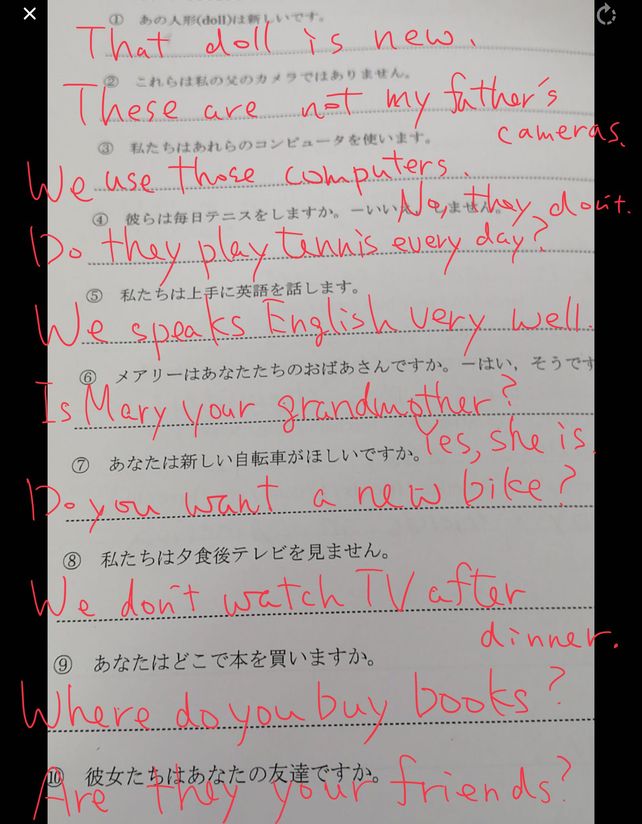 ① あの人形(doll)は新しいです。
That doll is new.
② これらは私の父のカメラではありません。
These are not my father's
cameras.
③ 私たちはあれらのコンピュータを使います。
We use those computers.
④ 彼らは毎日テニスをしますか。－いいえ、しません。
No, they don't.
Do they play tennis every day?
⑤ 私たちは上手に英語を話します。
We speaks English very well.
⑥ メアリーはあなたたちのおばあさんですか。－はい，そうです
Is Mary your grandmother?
Yes, she is.
⑦ あなたは新しい自転車がほしいですか。
Do you want a new bike?
⑧ 私たちは夕食後テレビを見ません。
We don't watch TV after
dinner.
⑨ あなたはどこで本を買いますか。
Where do you buy books?
⑩ 彼女たちはあなたの友達ですか。
Are they your friends?